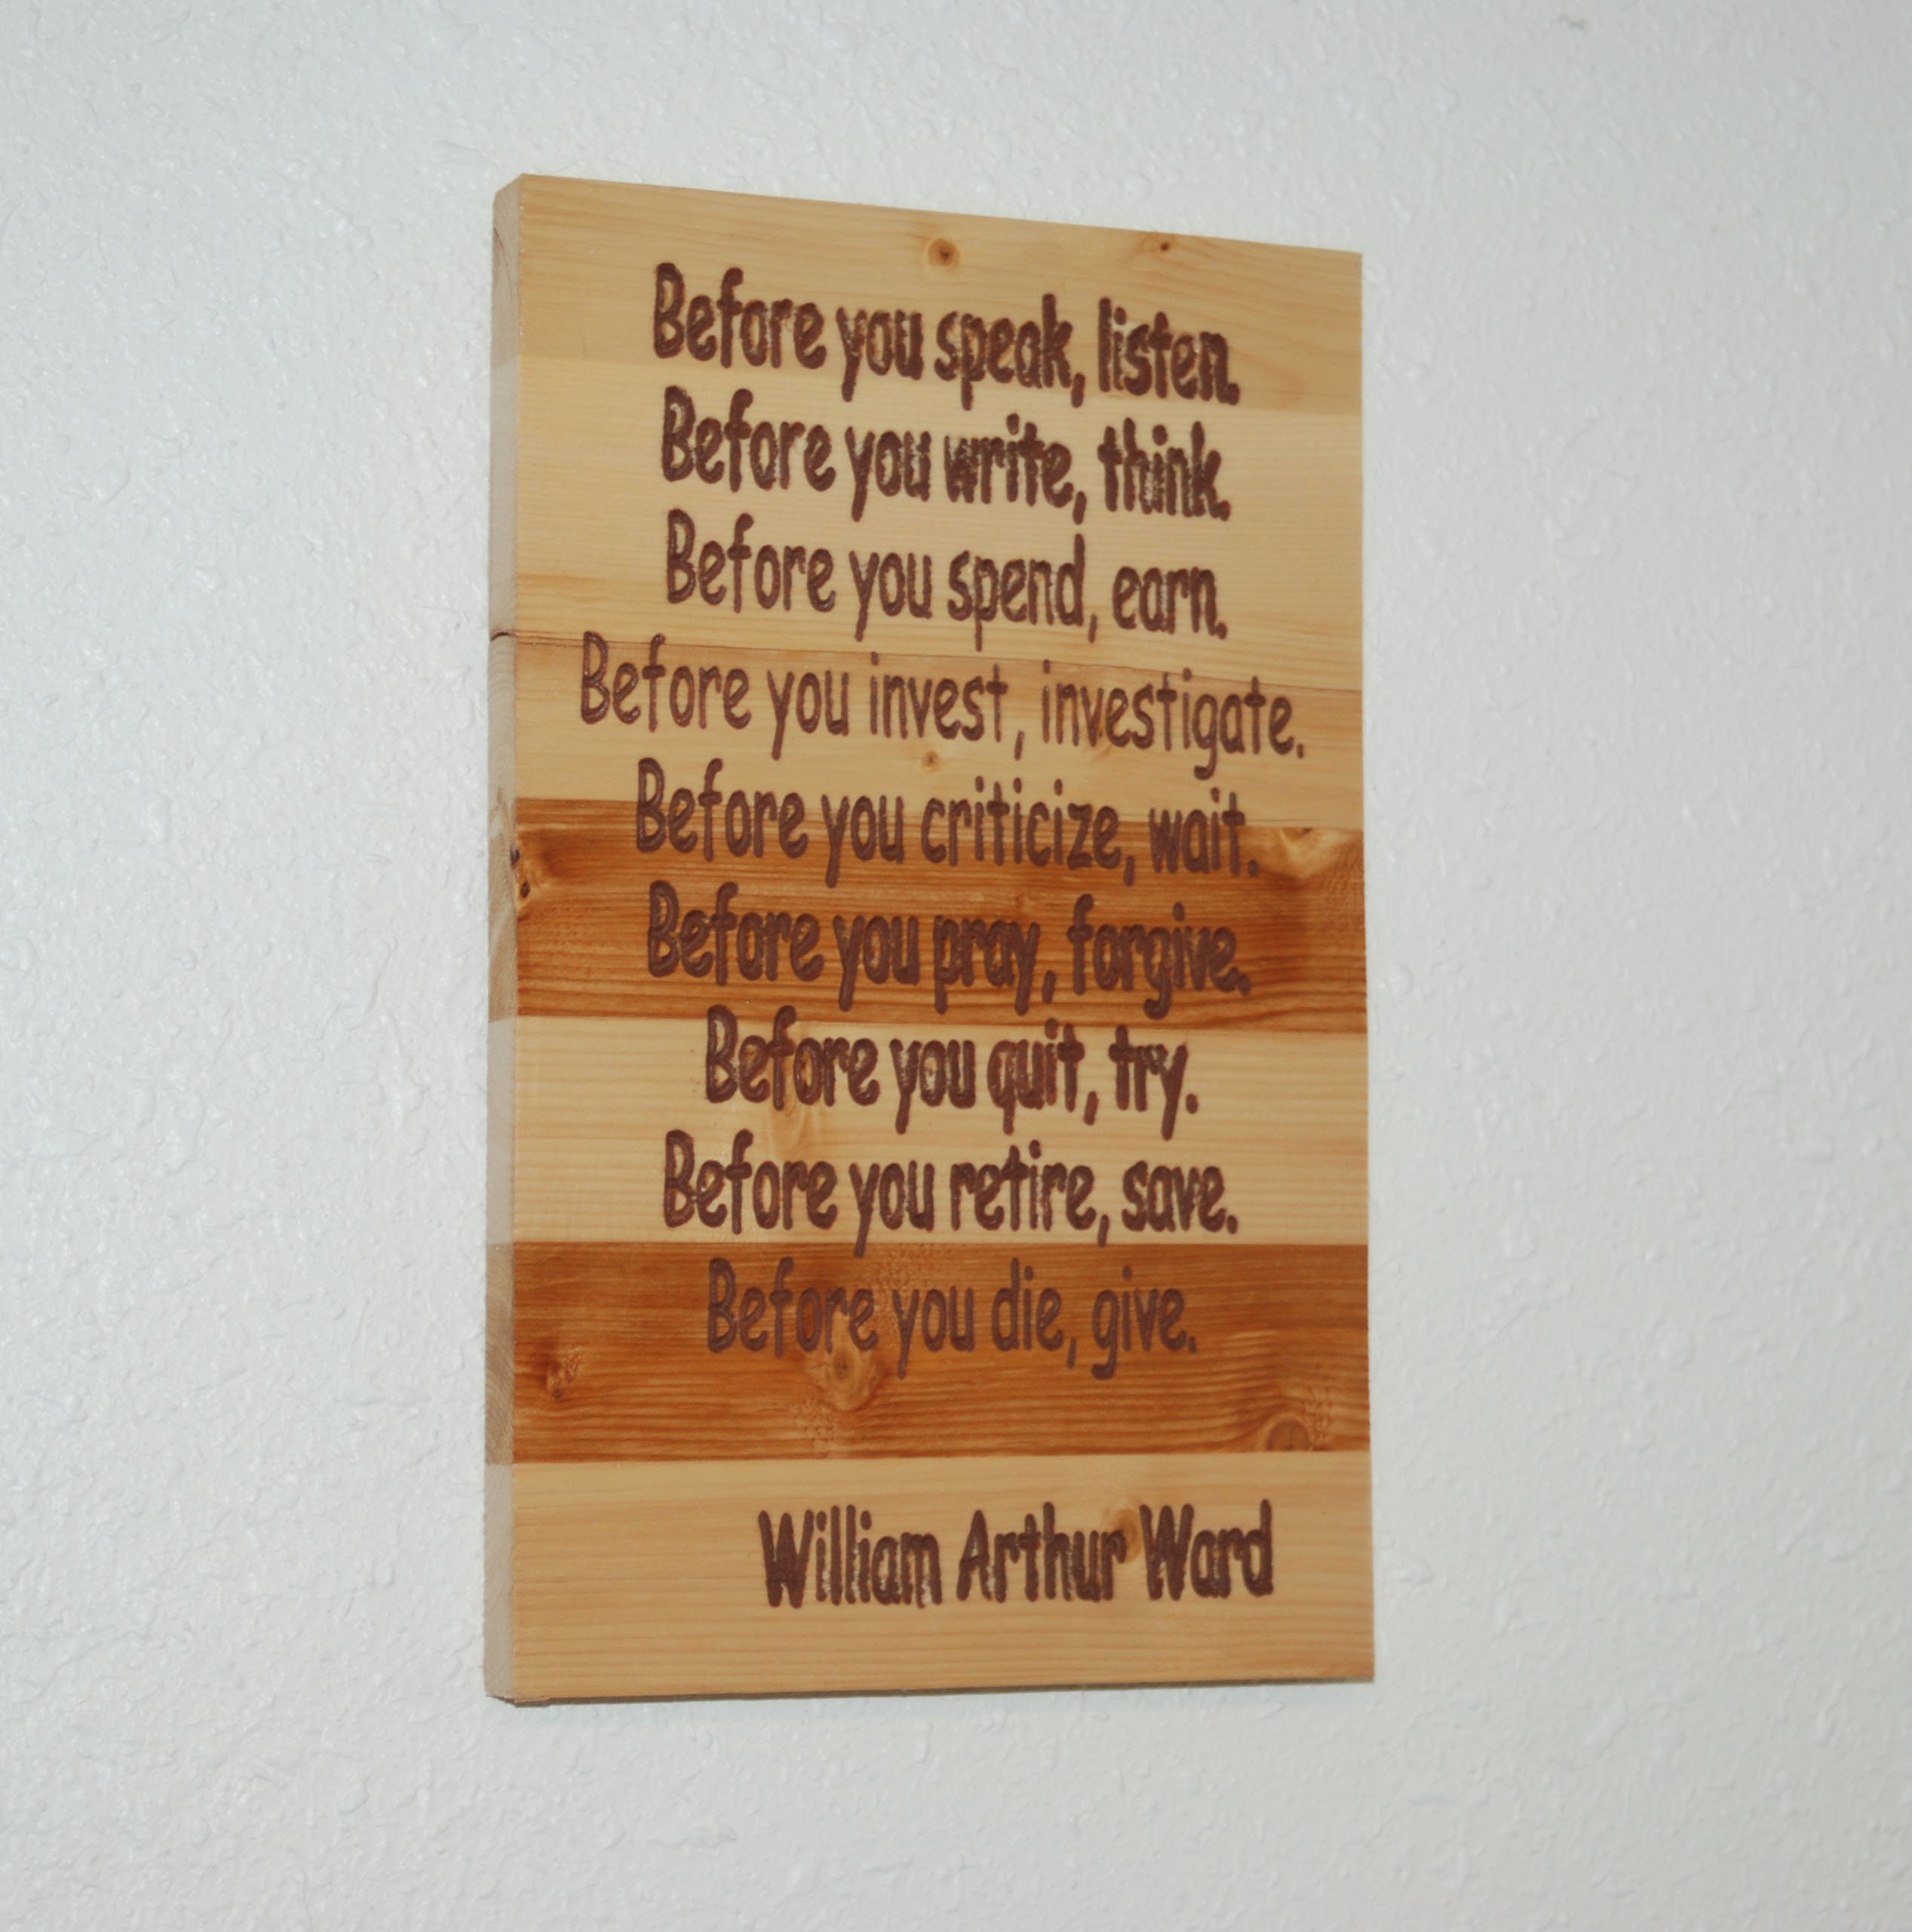 Before you speak, listen.
Before you write, think.
Before you spend, earn.
Before you invest, investigate.
Before you criticize, wait.
Before you pray, forgive.
Before you quit, try.
Before you retire, save.
Before you die, give.
William Arthur Ward